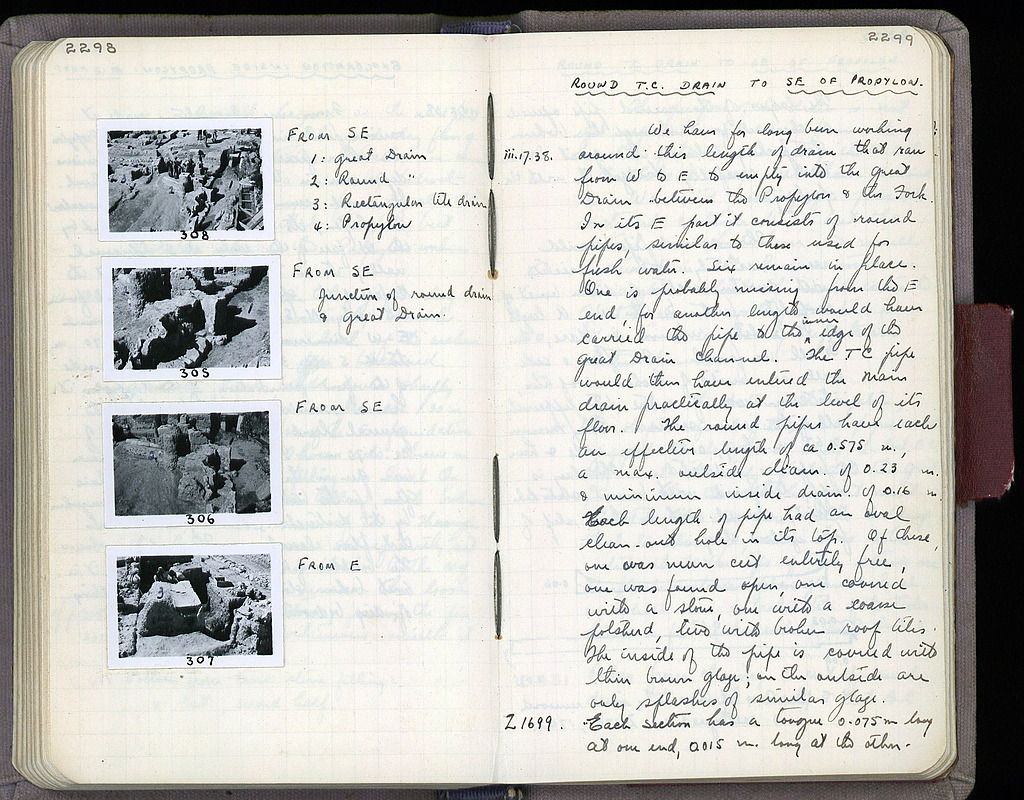 2298
FROM SE
1: Great Drain
2: Round "
3: Rectangular tile drain
4: Propylon
308
FROM SE
Junction of round drain
& Great Drain.
305
FROM SE
306
FROM E
307
2299
ROUND T.C. DRAIN TO SE OF PROPYLON.
We have for long been working
iii.17.38. around this length of drain that ran
from W to E to empty into the Great
Drain between the Propylon & the Fork.
In its E part it consists of round
pipes, similar to those used for
fresh water. Six remain in place.
One is probably missing from the E
end for another length would have
carried the pipe to the inner edge of the
Great Drain channel. The T C pipe
would then have entered the main
drain practically at the level of its
floor. The round pipes have each
an effective length of ca 0.575 m.,
a max. outside diam. of 0.23 m.
& minimum inside diam. of 0.16 m.
Each length of pipe had an oval
clean-out hole in its top. Of these,
one was never cut entirely free,
one was found open, one covered
with a stone, one with a coarse
potsherd, two with broken roof tiles.
The inside of the pipe is covered with
thin brown glaze; on the outside are
only splashes of similar glaze.
Z 1699. Each section has a tongue 0.075 m long
at one end, 0.015 m. long at the other.